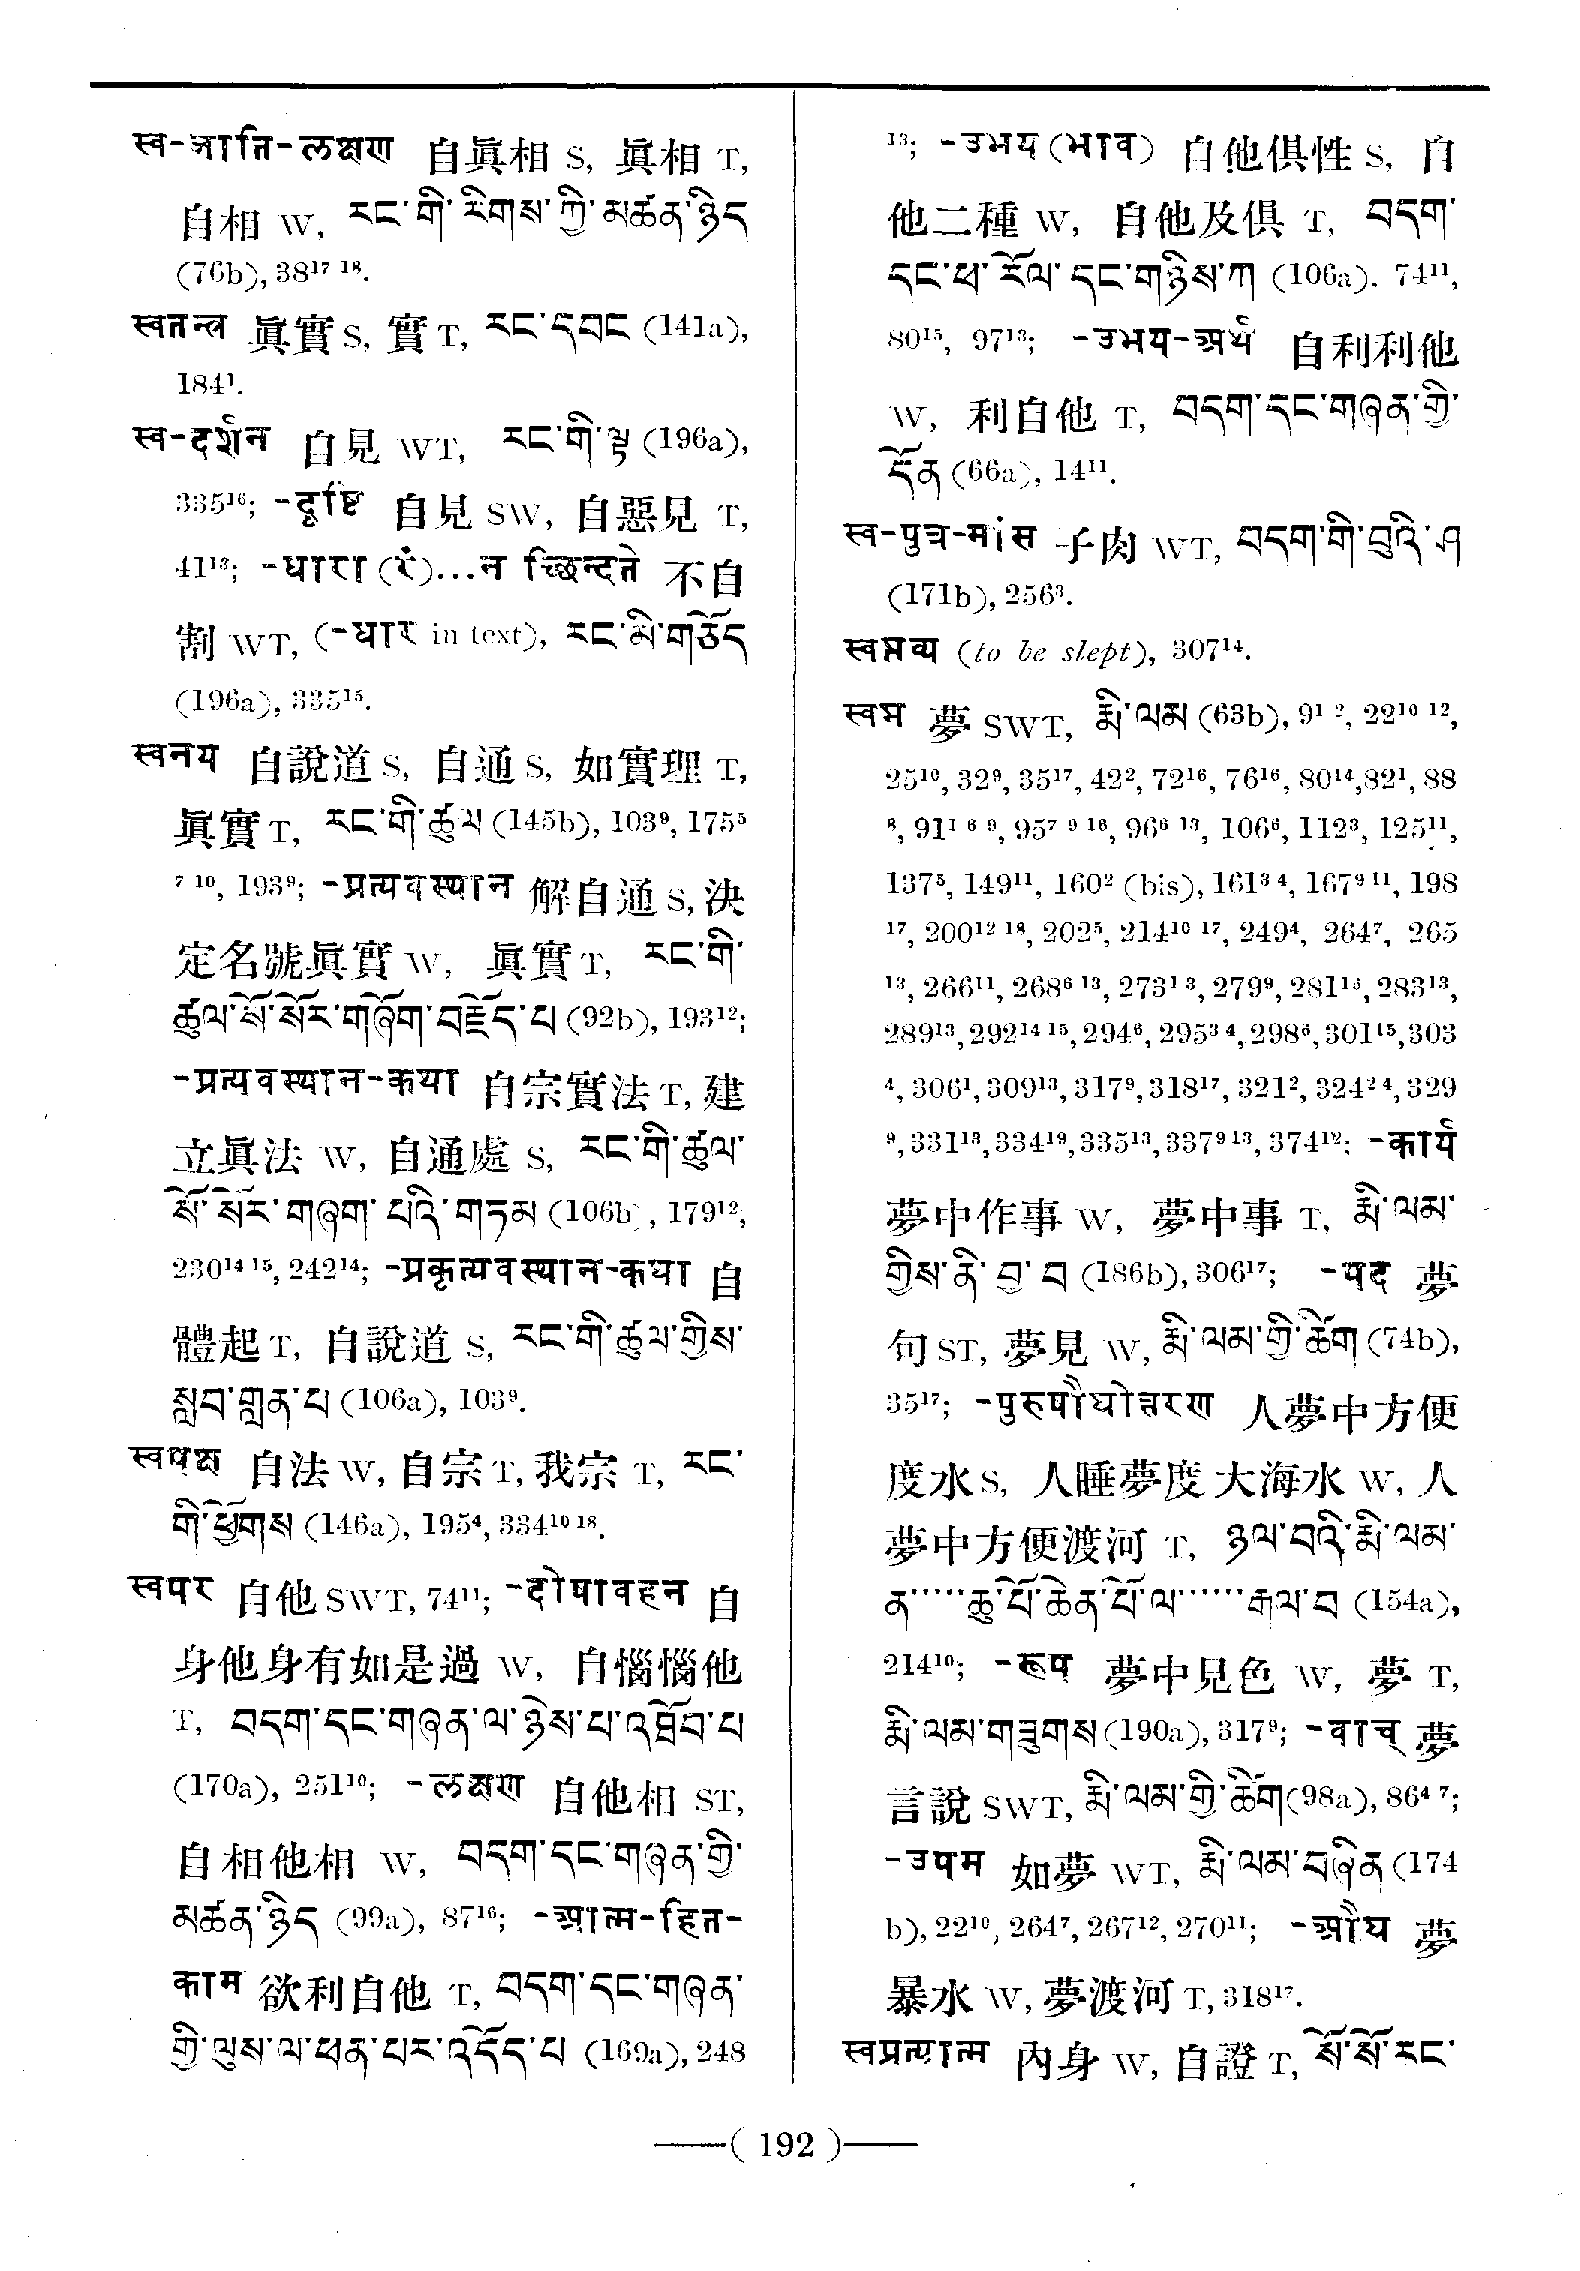 स्व-जाति-लक्षण 自眞相 S, 眞相 T,
自相 W, རང་གི་རིགས་ཀྱི་མཚན་ཉིད
(76b), 38¹⁷ ¹⁸.
स्वतन्त्र 眞實 S, 實 T, རང་དབང (141a),
184¹.
स्व-दर्शन 自見 WT, རང་གི་ལྟ (196a),
335¹⁶; -दृष्टि 自見 SW, 自惡見 T,
41¹³; -धारा (रं)...न च्छिन्दते 不自
割 WT, (-धार in text), རང་མི་གཅོད
(196a), 335¹⁵.
स्वनय 自說道 S, 自通 S, 如實理 T,
眞實 T, རང་གི་ཚུལ (145b), 103⁹, 175⁵
⁷ ¹⁰, 193⁹; -प्रत्यवस्थान 解自通 S, 決
定名號眞實 W, 眞實 T, རང་གི་
ཚུལ་སོ་སོར་གཞོག་བརྗོད་པ (92b), 193¹²;
-प्रत्यवस्थान-कथा 自宗實法 T, 建
立眞法 W, 自通處 S, རང་གི་ཚུལ་
སོ་སོར་གཞག་པའི་གཏམ (106b), 179¹²,
230¹⁴ ¹⁵, 242¹⁴; -प्रकृत्यवस्थान-कथा 自
體起 T, 自說道 S, རང་གི་ཚུལ་གྱིས་
སླབ་གླན་པ (106a), 103⁹.
स्वपक्ष 自法 W, 自宗 T, 我宗 T, རང་
གི་ཕྱོགས (146a), 195⁴, 334¹⁰ ¹⁸.
स्वपर 自他 SWT, 74¹¹; -दोषावहन 自
身他身有如是過 W, 自惱惱他
T, བདག་དང་གཞན་ལ་ཉེས་པ་འཐོབ་པ
(170a), 251¹⁰; -लक्षण 自他相 ST,
自相他相 W, བདག་དང་གཞན་གྱི་
མཚན་ཉིད (99a), 87¹⁶; -आत्म-हित-
काम 欲利自他 T, བདག་དང་གཞན་
གྱི་ལུས་ལ་ཕན་པར་འདོད་པ (169a), 248
¹³; -उभय (भाव) 自他俱性 S, 自
他二種 W, 自他及俱 T, བདག་
དང་ཕ་རོལ་དང་གཉིས་ཀ (106a). 74¹¹,
80¹⁵, 97¹³; -उभय-अर्थ 自利利他
W, 利自他 T, བདག་དང་གཞན་གྱི་
དོན (66a), 14¹¹.
स्व-पुत्र-मांस 子肉 WT, བདག་གི་བུའི་ཤ
(171b), 256³.
स्वप्तव्य (to be slept), 307¹⁴.
स्वप्न 夢 SWT, རྨི་ལམ (63b), 9¹ ², 22¹⁰ ¹²,
25¹⁰, 32⁹, 35¹⁷, 42², 72¹⁶, 76¹⁶, 80¹⁴, 82¹, 88
⁸, 91¹ ⁶ ⁹, 95⁷ ⁹ ¹⁶, 96⁶ ¹³, 106⁶, 112³, 125¹¹,
137⁵, 149¹¹, 160² (bis), 161³ ⁴, 167⁹ ¹¹, 198
¹⁷, 200¹² ¹⁸, 202⁵, 214¹⁰ ¹⁷, 249⁴, 264⁷, 265
¹³, 266¹¹, 268⁶ ¹³, 273¹ ³, 279⁹, 281¹³, 283¹³,
289¹³, 292¹⁴ ¹⁵, 294⁶, 295³ ⁴, 298⁶, 301¹⁵, 303
⁴, 306¹, 309¹³, 317⁹, 318¹⁷, 321², 324² ⁴, 329
⁹, 331¹³, 334¹⁹, 335¹³, 337⁹ ¹³, 374¹²; -कार्य
夢中作事 W, 夢中事 T, རྨི་ལམ་
གྱིས་ནི་བྱ་བ (186b), 306¹⁷; -पद 夢
句 ST, 夢見 W, རྨི་ལམ་གྱི་ཚོག (74b),
35¹⁷; -पुरुषौघोत्तरण 人夢中方便
度水 S, 人睡夢度大海水 W, 人
夢中方便渡河 T, ཉལ་བའི་རྨི་ལམ་
ན·····ཆུ་པོ་ཆེན་པོ་ལ······རྒལ་བ (154a),
214¹⁰; -रूप 夢中見色 W, 夢 T,
རྨི་ལམ་གཟུགས (190a), 317⁹; -वाच् 夢
言說 SWT, རྨི་ལམ་གྱི་ཚིག (98a), 86⁴ ⁷;
-उपम 如夢 WT, རྨི་ལམ་བཞིན (174
b), 22¹⁰, 264⁷, 267¹², 270¹¹; -औघ 夢
暴水 W, 夢渡河 T, 318¹⁷.
स्वप्रत्यात्म 內身 W, 自證 T, སོ་སོ་རང་
—( 192 )—